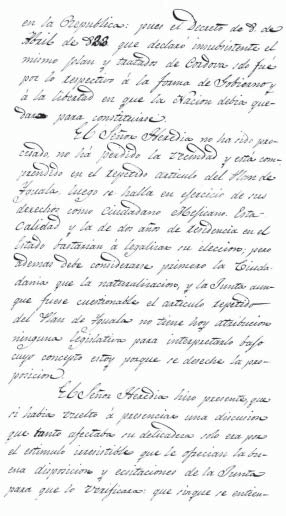 en la Republica: pues el Decreto de 8. de
Abril de 823 que declaró insubsistente el
mismo plan y tratados de Cordova solo fué
por lo respectivo á la forma de Gobierno y
á la libertad en que la Nacion debia que-
dar para constituirse.
El Señor Heredia no ha sido pro-
cesado, no há perdido la vecindad y está com-
prendido en el repetido articulo del Plan de
Yguala, luego se halla en ejercicio de sus
derechos como Ciudadano Mejicano. Esta
Calidad y la de dos años de residencia en el
Estado bastarian á legalizar su eleccion, pero
ademas debe considerarse primero la Ciuda-
dania que la naturalizacion, y la Junta aun-
que fuese cuestionable el articulo repetido
del Plan de Yguala no tiene hoy atribucion
ninguna legislativa para interpretarlo bajo
cuyo concepto estoy porque se deseche la pro-
posicion.
El Señor Heredia hizo presente, que
si habia vuelto á presenciar una discusion
que tanto afectaba su delicadeza solo era por
el estimulo irresistible que le ofrecian la bu-
ena disposicion y ecsitaciones de la Junta
para que lo verificara: que sinque se entien-